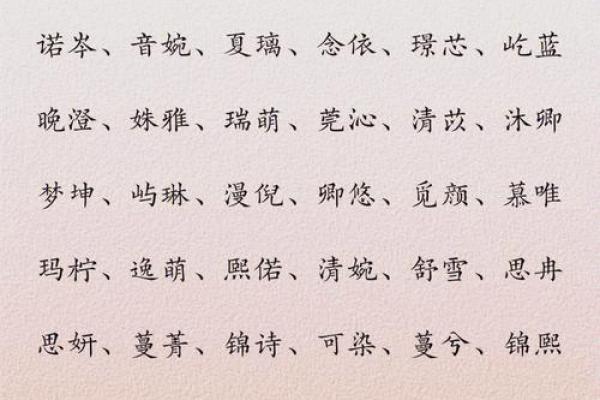 诺岑、音婉、夏璃、念依、璟芯、屹蓝
晚澄、姝雅、瑞萌、莞沁、清苡、沐卿
梦坤、屿琳、漫倪、卿悠、觅颜、慕唯
玛柠、逸萌、熙偌、清婉、舒雪、思冉
思妍、蔓菁、锦诗、可染、蔓兮、锦熙